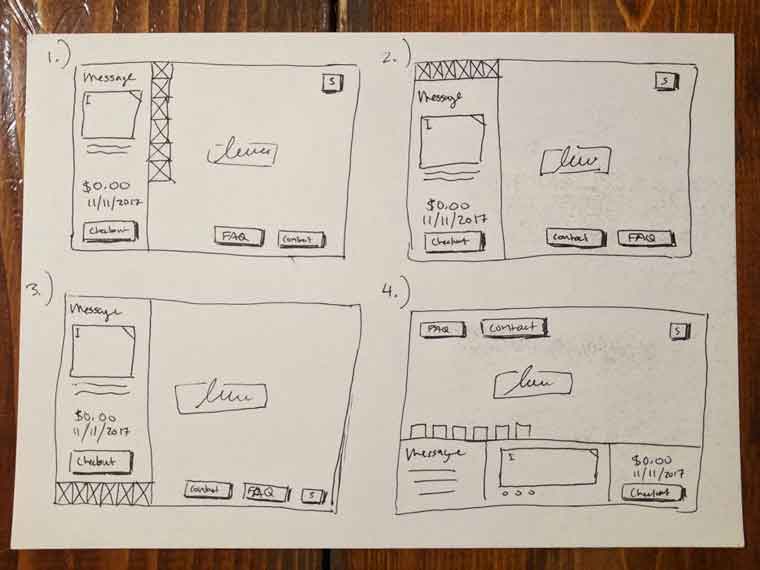 1.)
Message
S
I
$0.00
11/11/2017
Checkout
FAQ
Contact
2.)
Message
S
I
$0.00
11/11/2017
Checkout
Contact
FAQ
3.)
Message
I
$0.00
11/11/2017
Checkout
Contact
FAQ
S
4.)
FAQ
Contact
S
Message
I
$0.00
11/11/2017
Checkout